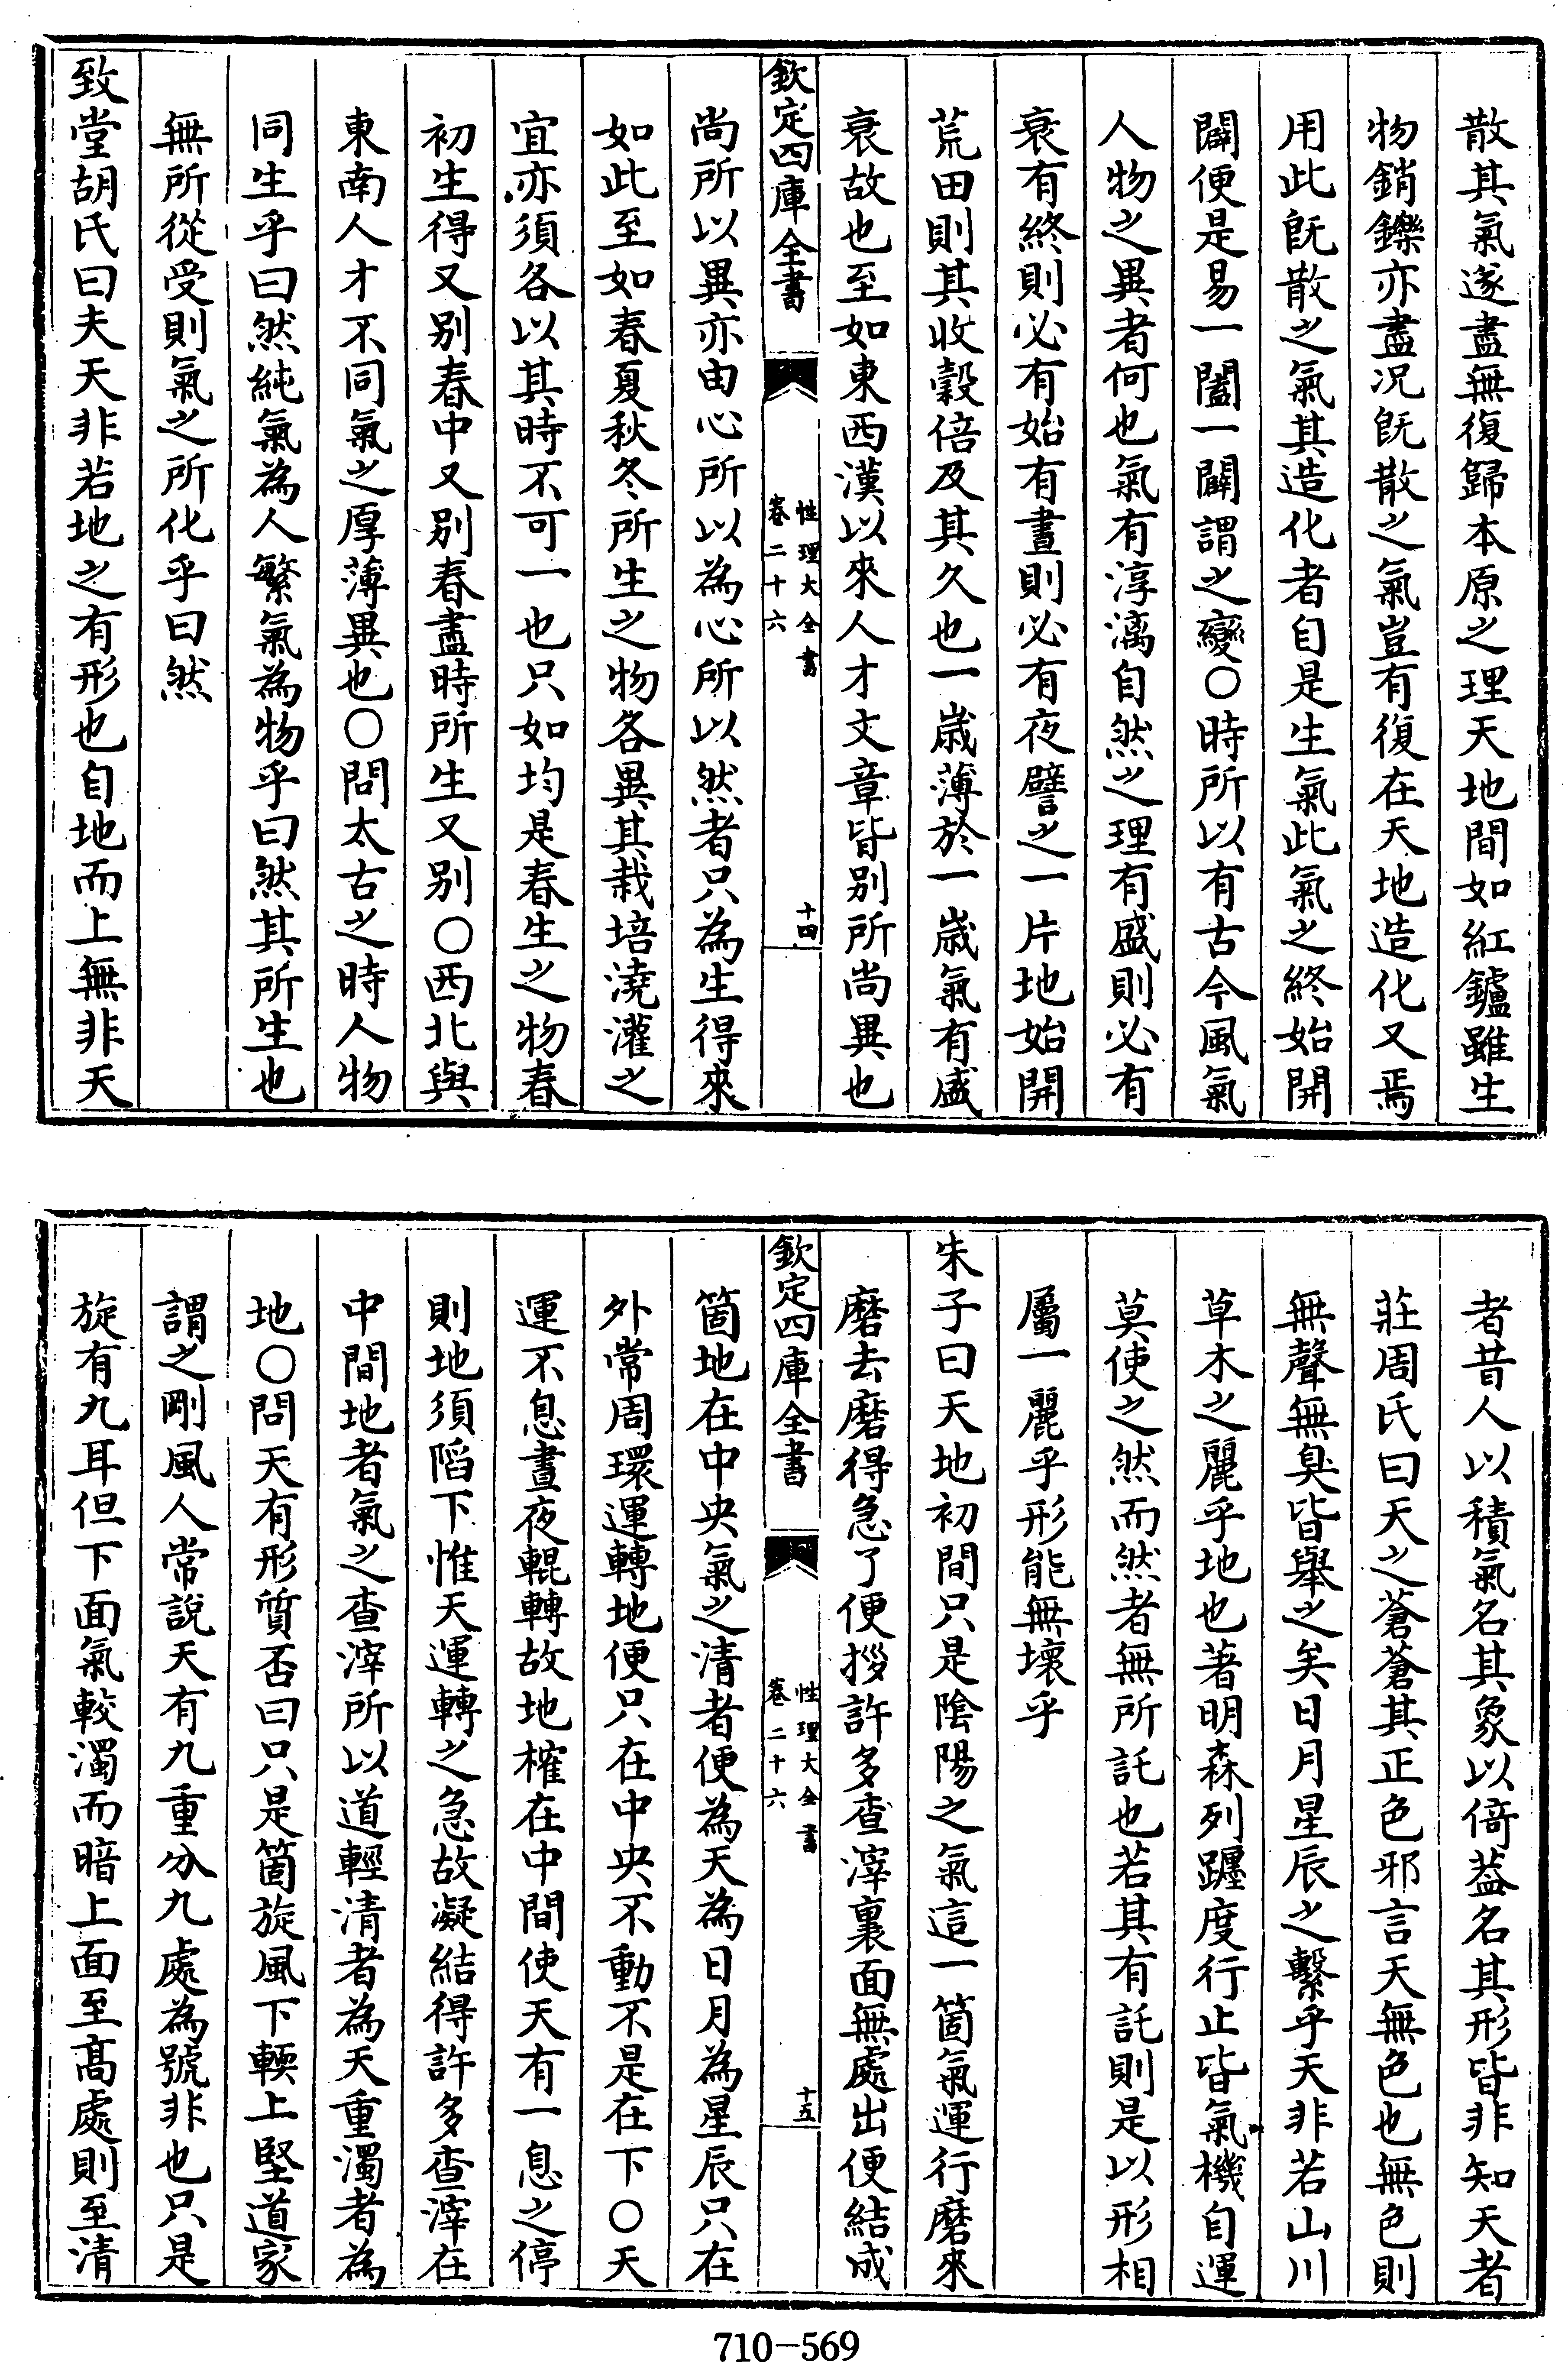 散其氣遂盡無復歸本原之理天地間如紅鑪雖生
物銷鑠亦盡况既散之氣豈有復在天地造化又焉
用此既散之氣其造化者自是生氣此氣之終始開
闢便是易一闔一闢謂之變○時所以有古今風氣
人物之異者何也氣有淳漓自然之理有盛則必有
衰有終則必有始有晝則必有夜譬之一片地始開
荒田則其收穀倍及其久也一歳薄於一歳氣有盛
衰故也至如東西漢以來人才文章皆别所尚異也
欽定四庫全書
性理大全書
卷二十六
十四
尚所以異亦由心所以為心所以然者只為生得來
如此至如春夏秋冬所生之物各異其栽培澆灌之
宜亦須各以其時不可一也只如均是春生之物春
初生得又别春中又别春盡時所生又别○西北與
東南人才不同氣之厚薄異也○問太古之時人物
同生乎曰然純氣為人繁氣為物乎曰然其所生也
無所從受則氣之所化乎曰然
致堂胡氏曰夫天非若地之有形也自地而上無非天
者昔人以積氣名其象以倚葢名其形皆非知天者
莊周氏曰天之蒼蒼其正色邪言天無色也無色則
無聲無臭皆舉之矣日月星辰之繫乎天非若山川
草木之麗乎地也著明森列躔度行止皆氣機自運
莫使之然而然者無所託也若其有託則是以形相
屬一麗乎形能無壞乎
朱子曰天地初間只是陰陽之氣這一箇氣運行磨來
磨去磨得急了便拶許多查滓裏面無處出便結成
欽定四庫全書
性理大全書
卷二十六
十五
箇地在中央氣之清者便為天為日月為星辰只在
外常周環運轉地便只在中央不動不是在下○天
運不息晝夜輥轉故地榷在中間使天有一息之停
則地須䧟下惟天運轉之急故凝結得許多查滓在
中間地者氣之查滓所以道輕清者為天重濁者為
地○問天有形質否曰只是箇旋風下輭上堅道家
謂之剛風人常說天有九重分九處為號非也只是
旋有九耳但下面氣較濁而暗上面至髙處則至清
710-569